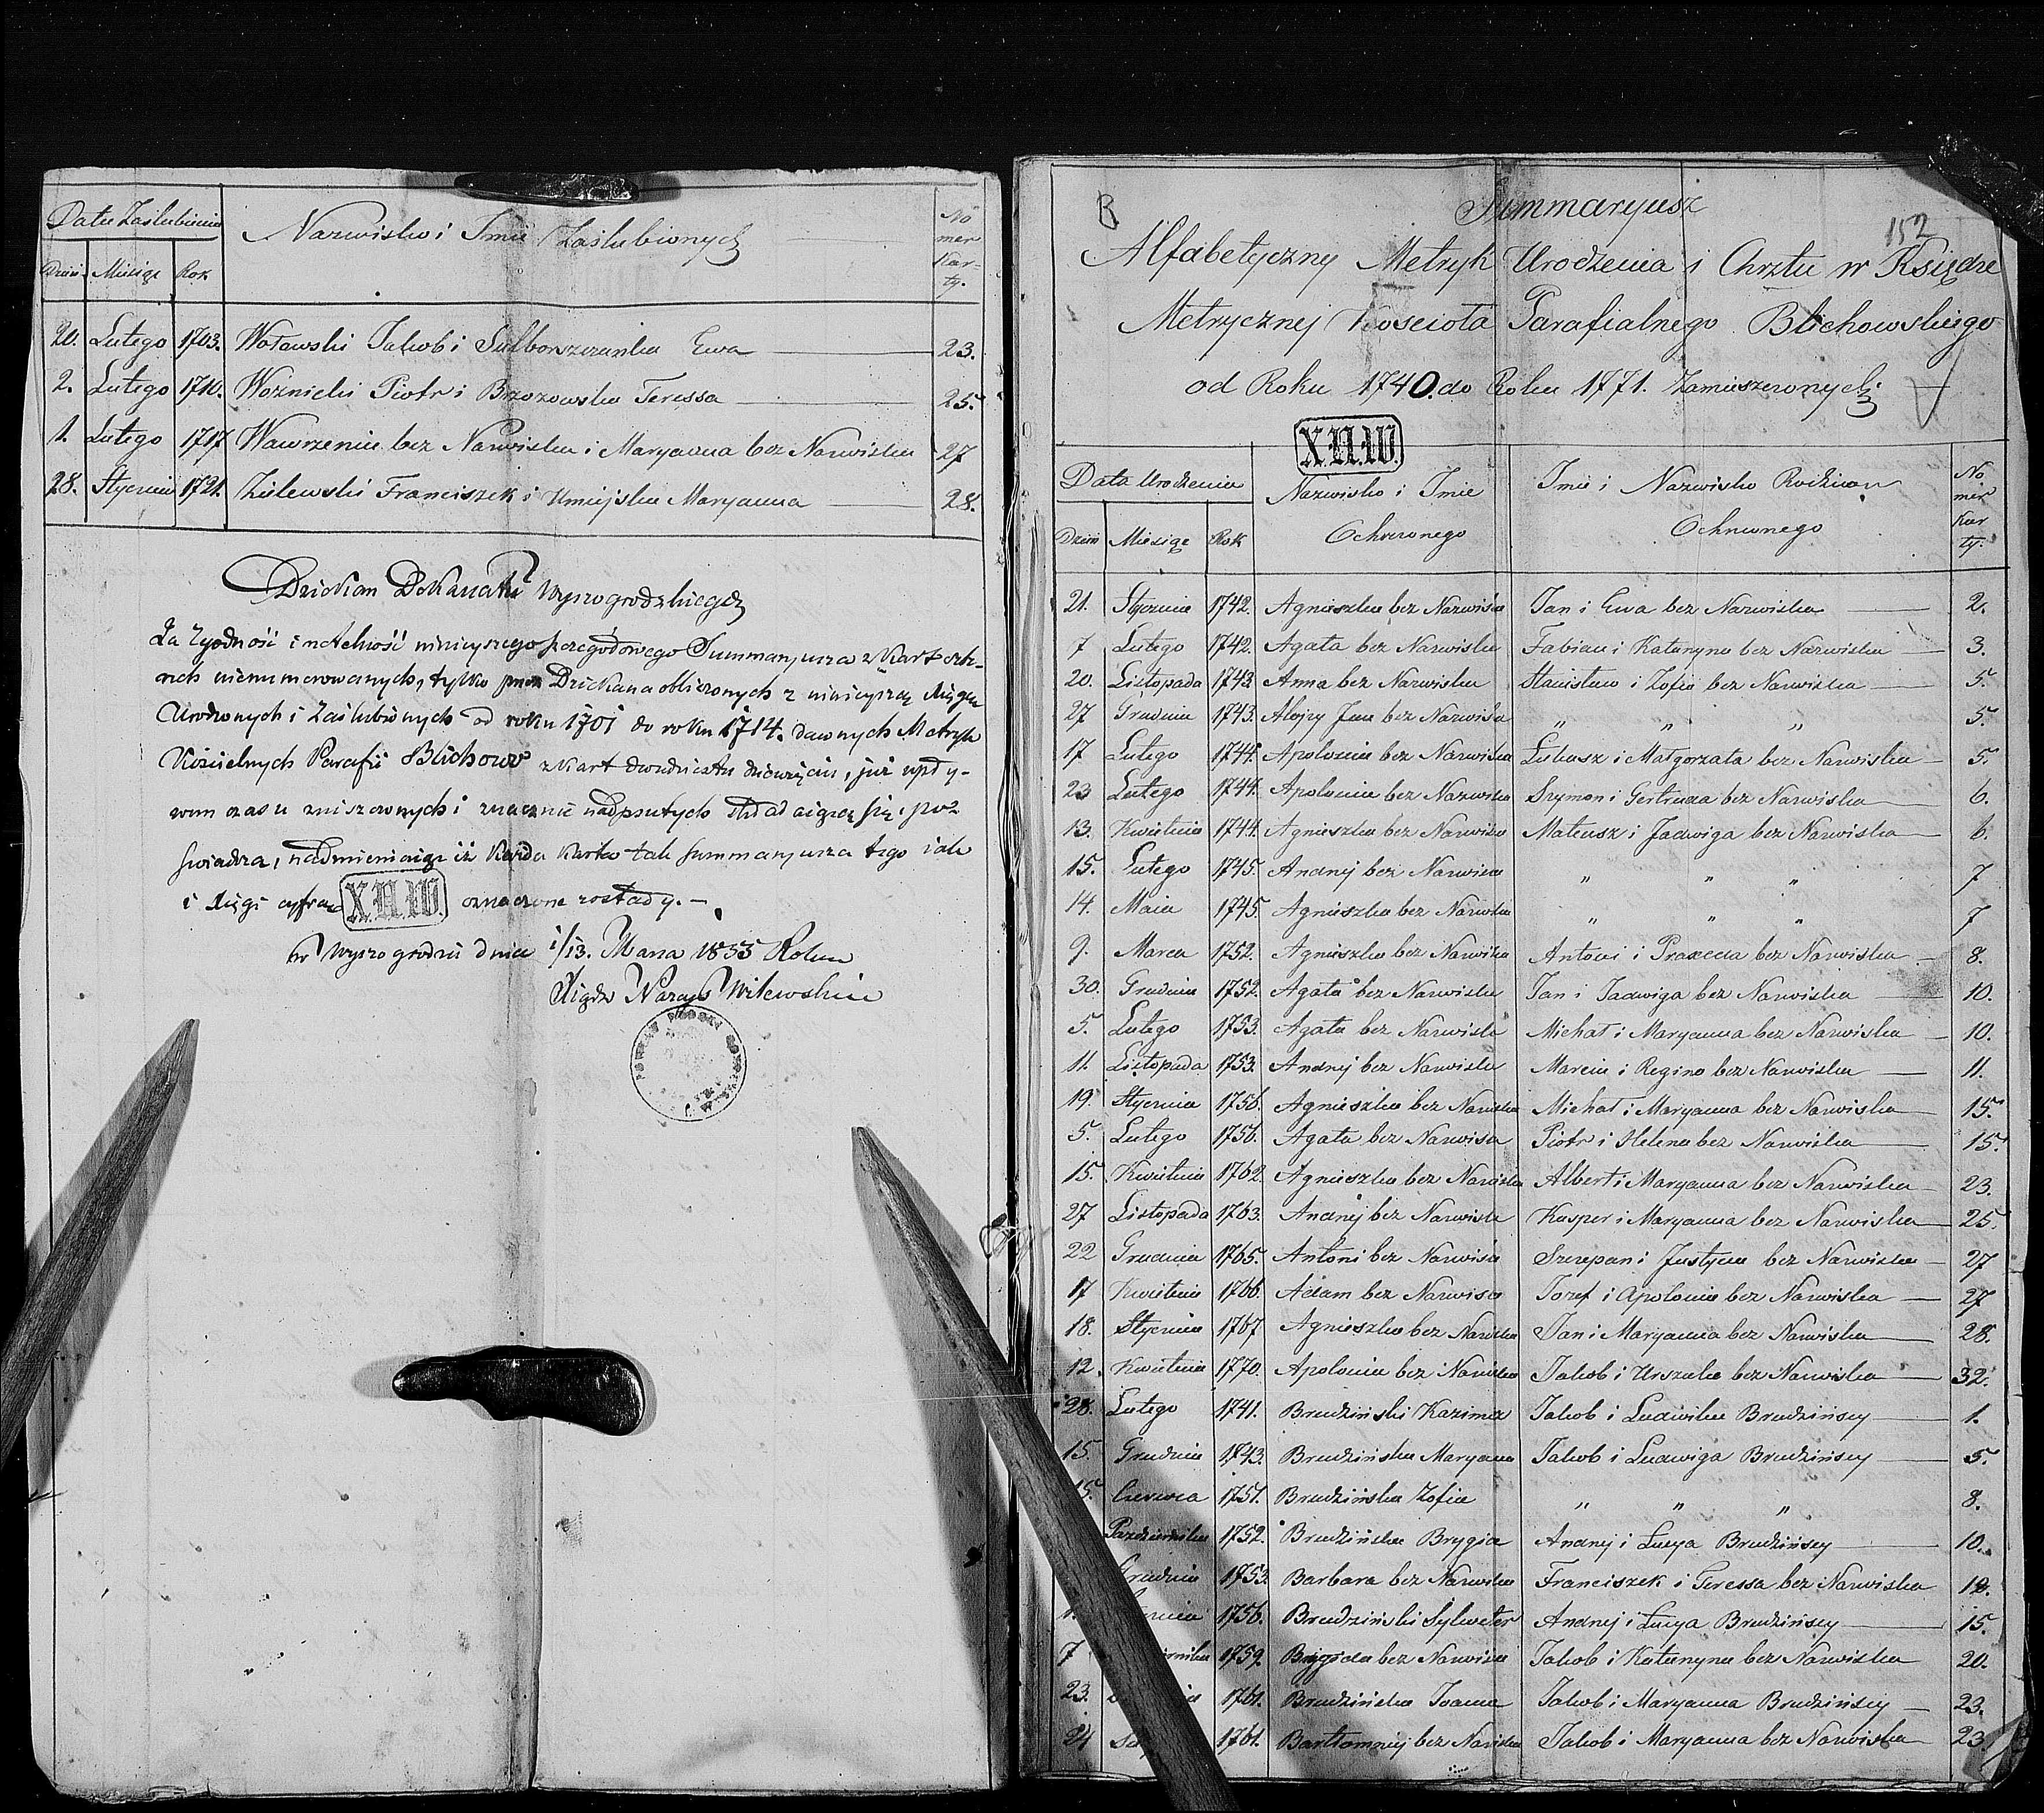 Data Zaślubienia
Nazwisko i Imie Zaślubionych
No
mer
Kar-
ty.
Dzień Miesiąc Rok
20. Lutego 1703. Wołowski Jakob i Ewa 23.
2. Lutego 1710. Woźnicki Piotr i Brzozowska Teressa 25.
1. Lutego 1717 Wawrzeniec bez Nazwiska i Maryanna bez Nazwiska 27
28. Stycznia 1721. Zielewski Franciszek i Umiejska Maryanna 28.
Dziekan Dekanatu Wyszogrodzkiego
Za zgodność i rzetelność niniejszego Summaryusza z Kart
nienumerowanych, tylko przez Dziekana obliczonych z niniejszą Xięgą
Urodzonych i Zaślubionych od roku 1701 do roku 1714. dawnych Metryk
Kościelnych Parafii Blichowo z Kart dwudziestu dziewięciu, już upły-
wem czasu zniszczonych i znacznie nadpsutych składaiącą się, po-
świadcza, nadmieniaiąc iż Każda Karta tak Summaryusza tego iako
i Xięgi cyfrą X.N.W. oznaczone zostały.
w Wyszogrodzie dnia 1/13. Marca 1853 Roku
Xiądz Narcyz Wilewski
B
Summaryusz
152
Alfabetyczny Metryk Urodzenia i Chrztu w Księdze
Metrycznej Kościoła Parafialnego Blichowskiego
od Roku 1740. do Roku 1771. Zamieszczonych
X.N.W.
Data Urodzenia
Nazwisko i Imie
Ochrzconego
Imie i Nazwisko Rodziców
Ochrzconego
No
mer
Kar
ty.
Dzień Miesiąc Rok
21. Stycznia 1742. Agnieszka bez Nazwiska Jan i Ewa bez Nazwiska 2.
7 Lutego 1742. Agata bez Nazwiska Fabian i Katarzyna bez Nazwiska 3.
20. Listopada 1743 Anna bez Nazwiska Stanisław i Zofia bez Nazwiska 5.
27 Grudnia 1743. Alojzy Jan bez Nazwiska " " " 5.
17 Lutego 1744. Apolonia bez Nazwiska Łukasz i Małgorzata bez Nazwiska 5.
23 Lutego 1744. Apolonia bez Nazwiska Szymon i Gertruda bez Nazwiska 6.
13. Kwietnia 1744. Agnieszka bez Nazwiska Mateusz i Jadwiga bez Nazwiska 6.
15. Lutego 1745. Andrzej bez Nazwiska " " " 7
14. Maia 1745. Agnieszka bez Nazwiska " " " 7
9. Marca 1752. Agnieszka bez Nazwiska Antoni i Praxeda bez Nazwiska 8.
30. Grudnia 1752. Agata bez Nazwiska Jan i Jadwiga bez Nazwiska 10.
5. Lutego 1753. Agata bez Nazwiska Michał i Maryanna bez Nazwiska 10.
11. Listopada 1753. Andrzej bez Nazwiska Marcin i Regina bez Nazwiska 11.
19. Stycznia 1756. Agnieszka bez Nazwiska Michał i Maryanna bez Nazwiska 15.
5. Lutego 1756. Agata bez Nazwiska Piotr i Helena bez Nazwiska 15.
15. Kwietnia 1762. Agnieszka bez Nazwiska Albert i Maryanna bez Nazwiska 23.
27 Listopada 1763. Andrzej bez Nazwiska Kasper i Maryanna bez Nazwiska 25.
22 Grudnia 1765. Antoni bez Nazwiska Szczepan i Justyna bez Nazwiska 27
17 Kwietnia 1766. Adam bez Nazwiska Józef i Apolonia bez Nazwiska 27
18. Stycznia 1767 Agnieszka bez Nazwiska Jan i Maryanna bez Nazwiska 28.
12. Kwietnia 1770. Apolonia bez Nazwiska Jakob i Urszula bez Nazwiska 32.
28. Lutego 1741. Brudziński Kazimirz Jakob i Ludwika Brudzińscy 1.
15. Grudnia 1743. Brudzińska Maryanna Jakob i Ludwiga Brudzińscy 5.
15. Czerwca 1751. Brudzińska Zofia " " " 8.
Pazdziernika 1752. Brudzińska Brygida Andrzej i Łucya Brudzińscy 10.
Grudnia 1753 Barbara bez Nazwiska Franciszek i Teressa bez Nazwiska 12.
1756. Brudziński Sylwester Andrzej i Łucya Brudzińscy 15.
7 1759. Brygida bez Nazwiska Jakob i Katarzyna bez Nazwiska 20.
23. 1761. Brudzińska Joanna Jakob i Maryanna Brudzińscy 23.
24 1761. Bartłomniej bez Nazwiska Jakob i Maryanna bez Nazwiska 23.